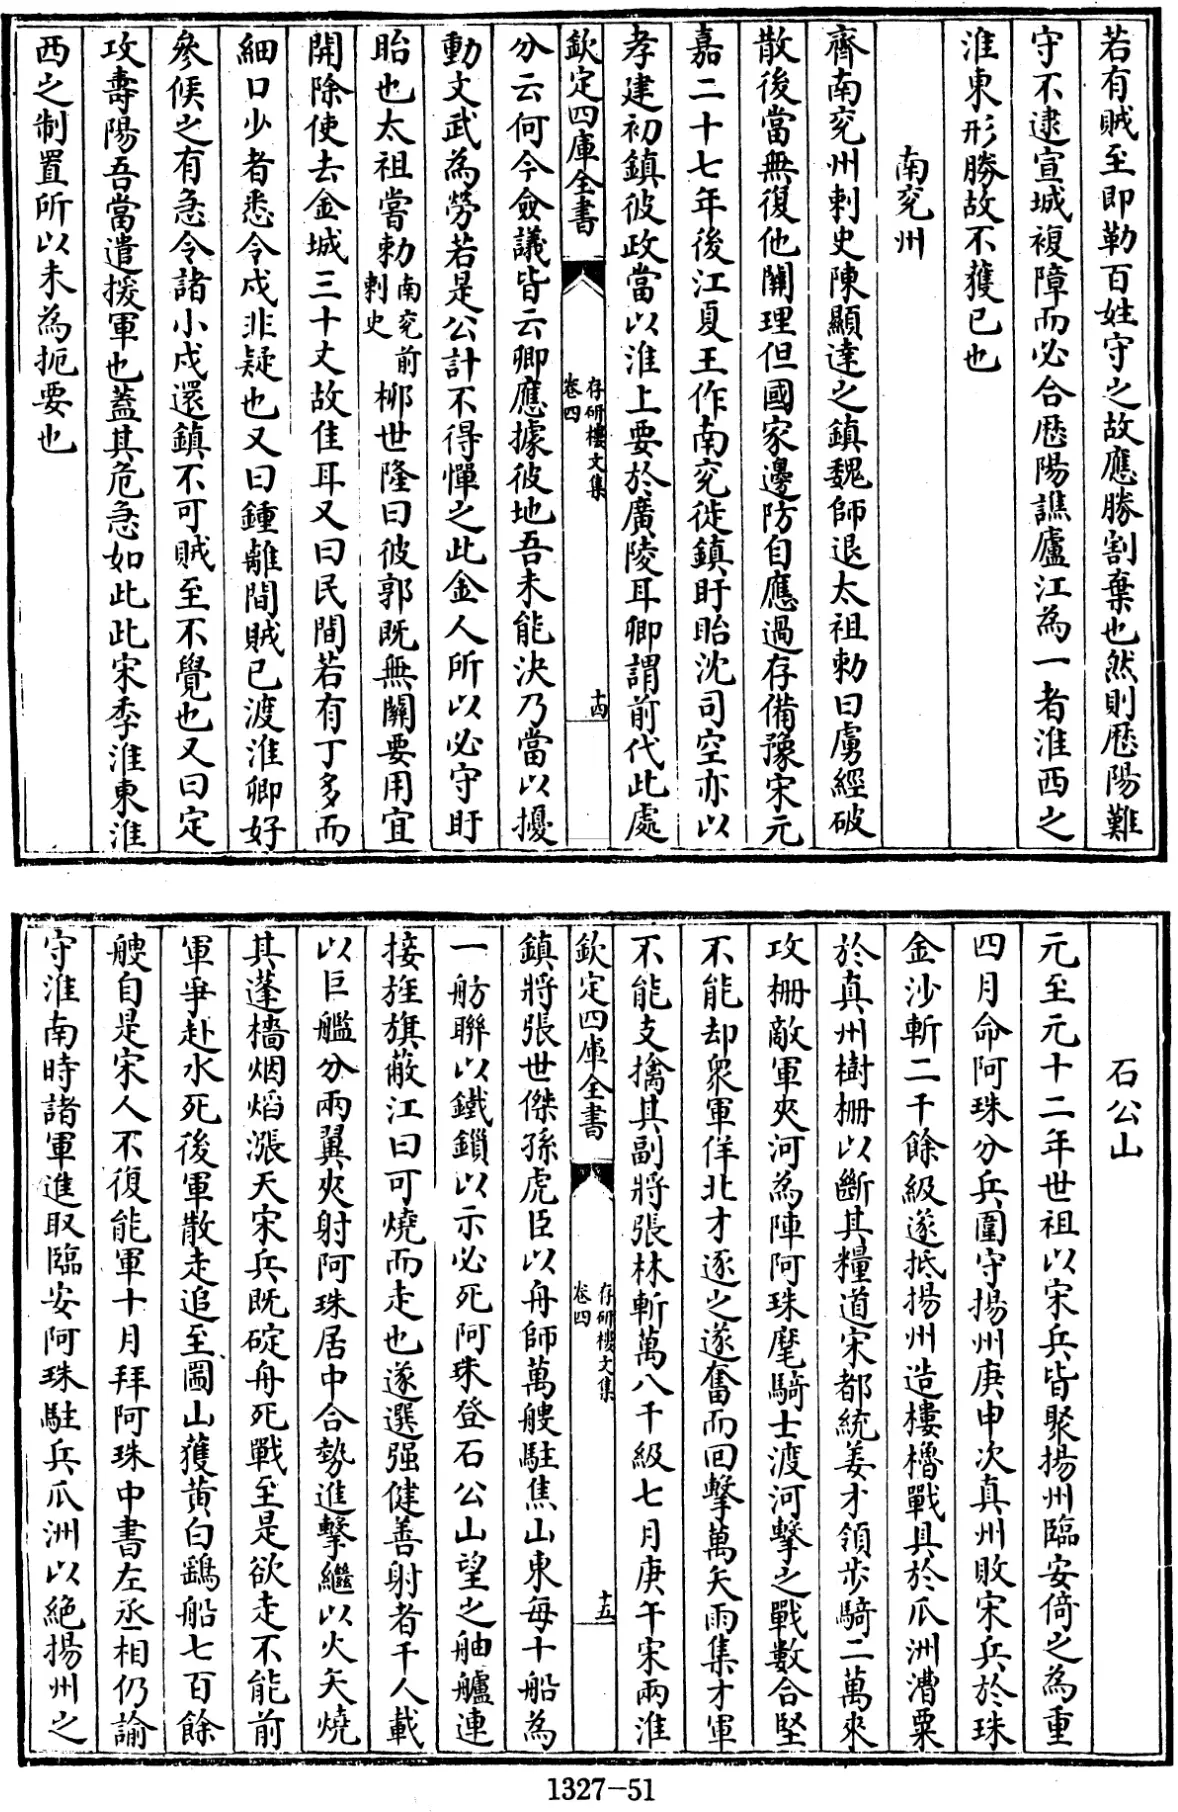 若有賊至即勒百姓守之故應勝割棄也然則歴陽難
守不逮宣城複障而必合歴陽譙廬江為一者淮西之
淮東形勝故不獲已也
南兖州
齊南兖州刺史陳顯達之鎮魏師退太祖勅曰虜經破
散後當無復他闗理但國家邊防自應過存備豫宋元
嘉二十七年後江夏王作南兖徙鎮盱眙沈司空亦以
孝建初鎮彼政當以淮上要於廣陵耳卿謂前代此處
欽定四庫全書
存研樓文集
卷四
十四
分云何今僉議皆云卿應據彼地吾未能決乃當以擾
動文武為勞若是公計不得憚之此金人所以必守盱
眙也太祖嘗勅南兖前刺史栁世隆曰彼郭既無闗要用宜
開除使去金城三十丈故佳耳又曰民間若有丁多而
細口少者悉令戍非疑也又曰鍾離間賊已渡淮卿好
參候之有急令諸小戍還鎮不可賊至不覺也又曰定
攻壽陽吾當遣援軍也葢其危急如此此宋季淮東淮
西之制置所以未為扼要也
石公山
元至元十二年世祖以宋兵皆聚揚州臨安倚之為重
四月命阿珠分兵圍守揚州庚申次真州敗宋兵於珠
金沙斬二千餘級遂抵揚州造樓櫓戰具於瓜洲漕粟
於真州樹栅以斷其糧道宋都統姜才領步騎二萬來
攻栅敵軍夾河為陣阿珠麾騎士渡河擊之戰數合堅
不能却衆軍佯北才逐之遂奮而回擊萬矢雨集才軍
不能支擒其副將張林斬萬八千級七月庚午宋兩淮
欽定四庫全書
存研樓文集
卷四
十五
鎮將張世傑孫虎臣以舟師萬艘駐焦山東每十船為
一舫聯以鐵鎖以示必死阿珠登石公山望之舳艫連
接旌旗蔽江曰可燒而走也遂選强健善射者千人載
以巨艦分兩翼夾射阿珠居中合勢進擊繼以火矢燒
其蓬檣烟焰漲天宋兵既碇舟死戰至是欲走不能前
軍爭赴水死後軍散走追至圌山獲黄白鷂船七百餘
艘自是宋人不復能軍十月拜阿珠中書左丞相仍諭
守淮南時諸軍進取臨安阿珠駐兵瓜洲以絶揚州之
1327-51